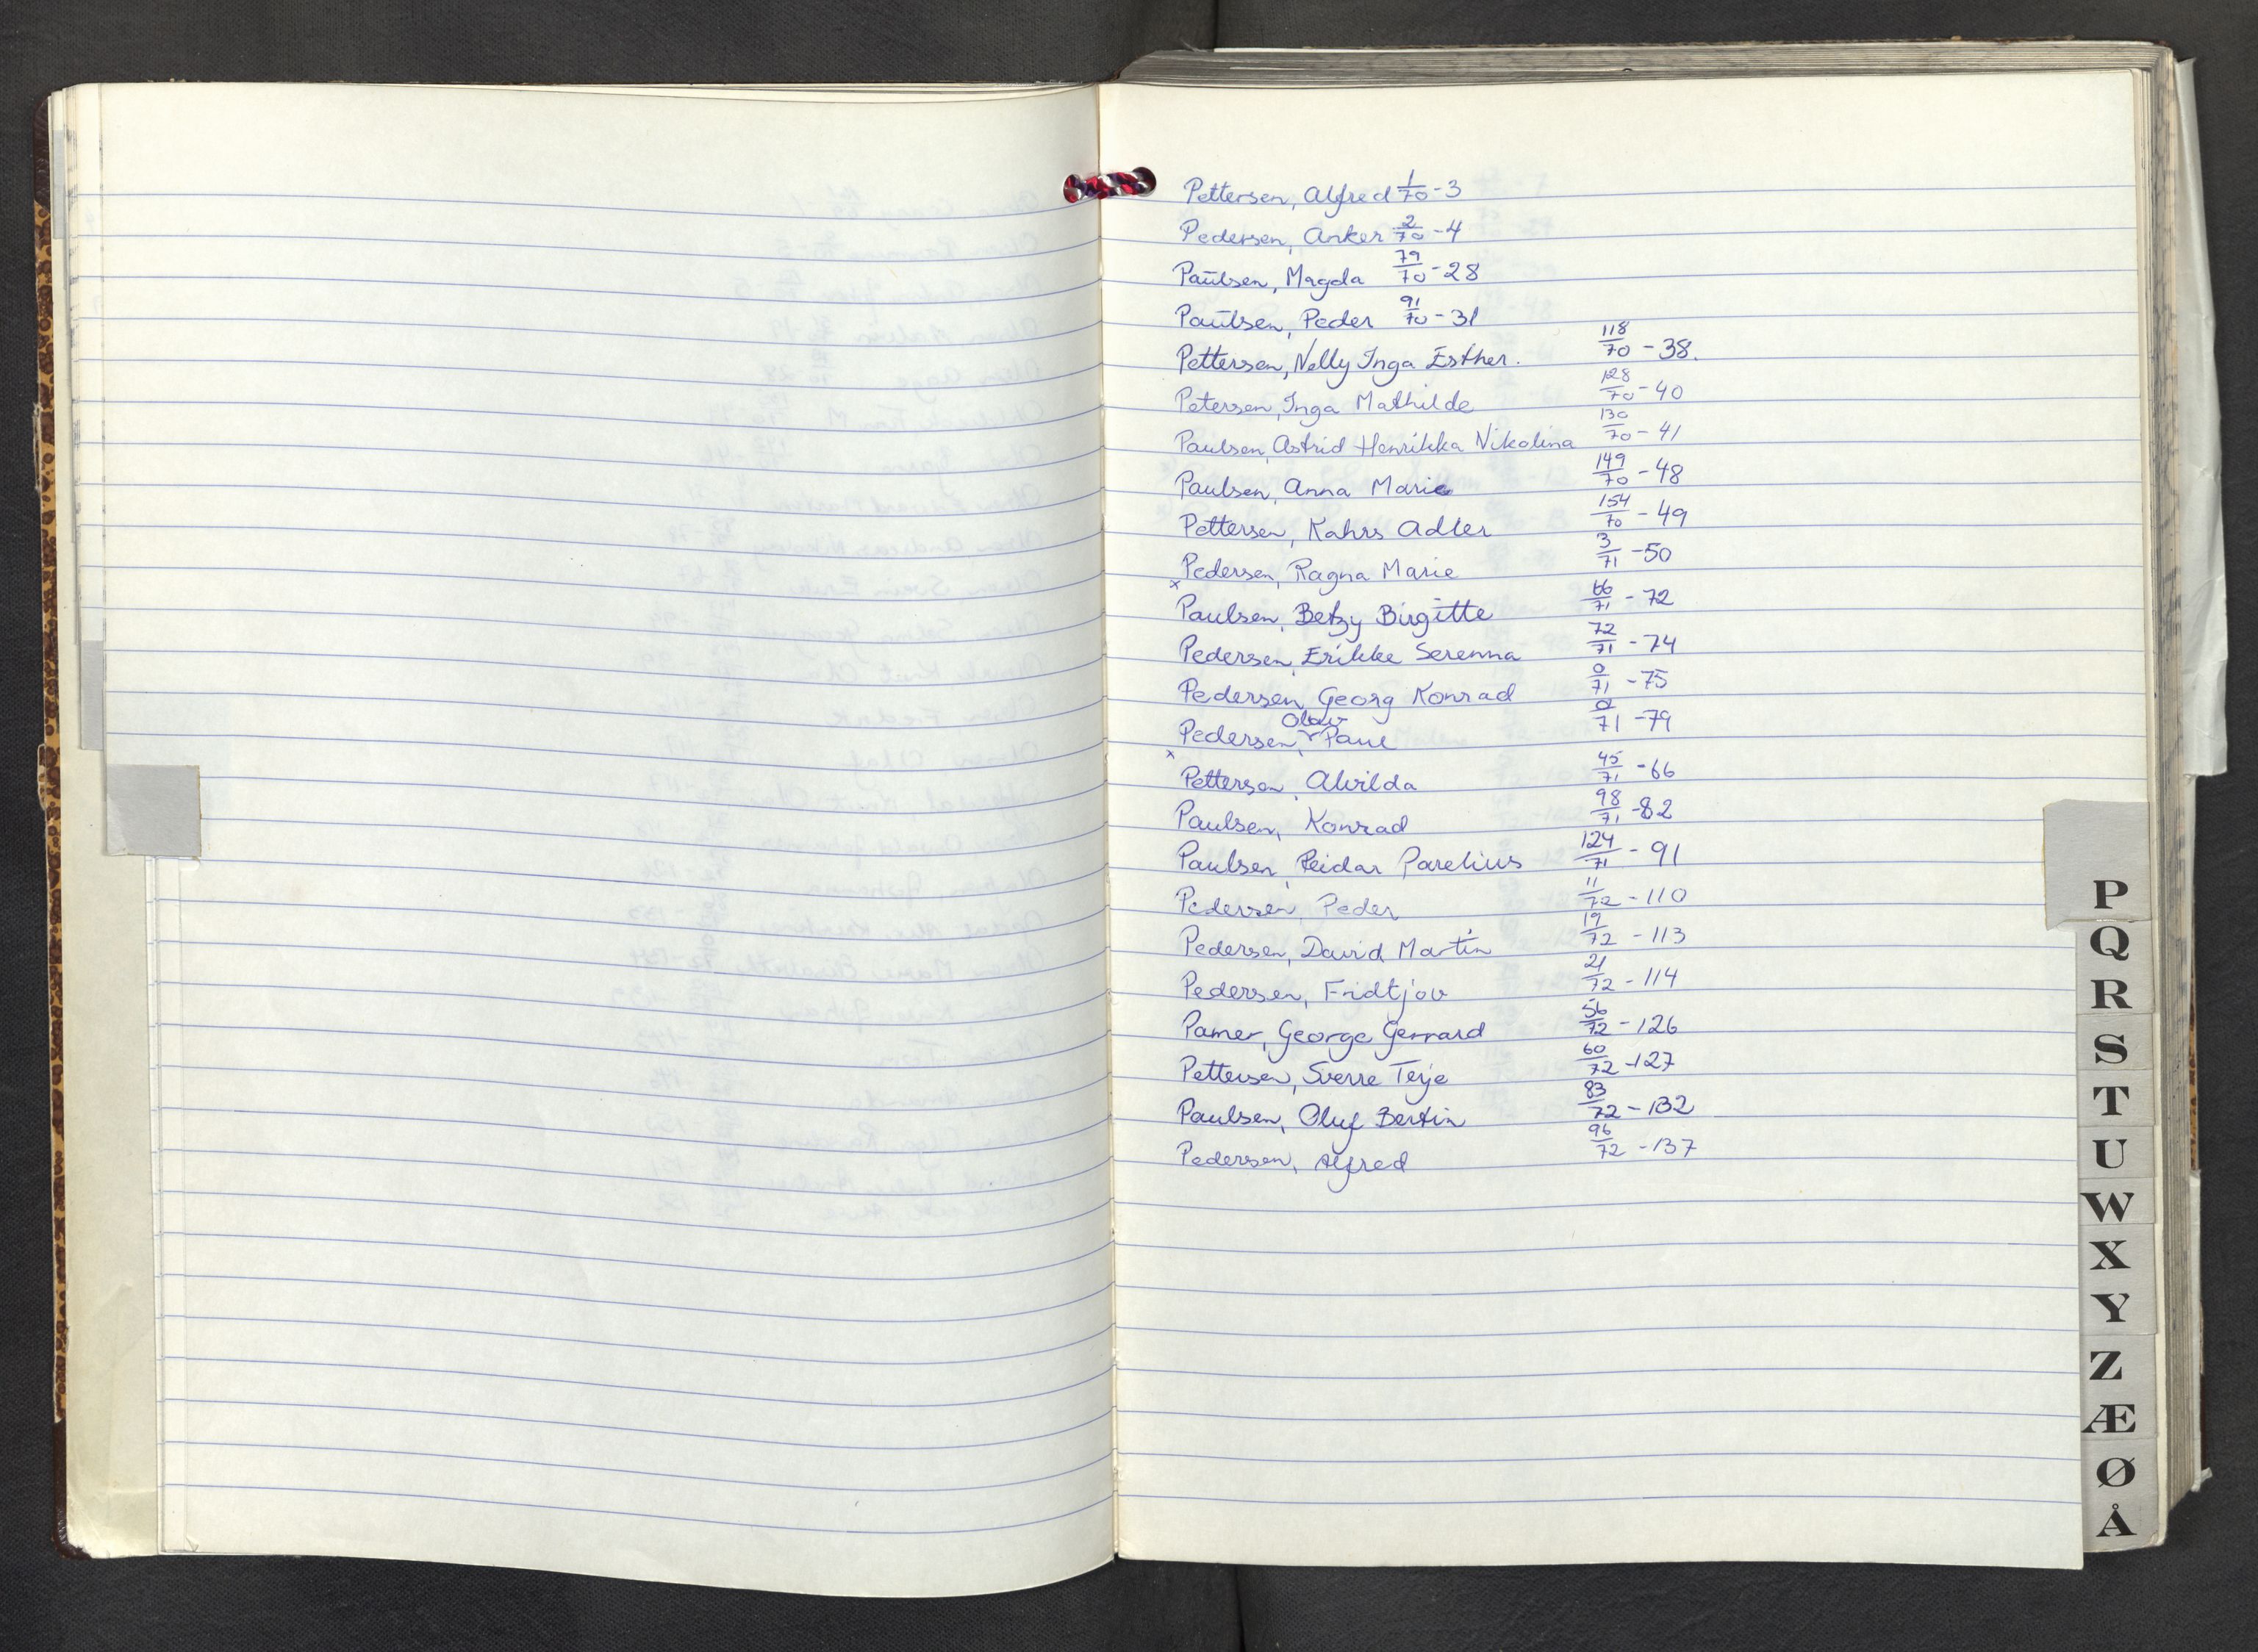 Pettersen, Alfred 1/70 - 3
Pedersen, Anker 2/70 - 4
Paulsen, Magda 79/70 - 28
Paulsen, Peder 91/70 - 31
Pettersen, Nelly Inga Esther. 118/70 - 38.
Petersen, Inga Mathilde 128/70 - 40
Paulsen, Astrid Henrikka Nikolina 130/70 - 41
Paulsen, Anna Marie 149/70 - 48
Pettersen, Kahrs Adler 154/70 - 49
Pedersen, Ragna Marie 3/71 - 50
x Paulsen, Betzy Birgitte 66/71 - 72
Pedersen, Erikke Serenna 72/71 - 74
Pedersen, Georg Konrad 0/71 - 75
Pedersen, Olav Paul 0/71 - 79
x Pettersen, Alvilda 45/71 - 66
Paulsen, Konrad 98/71 - 82
Paulsen, Reidar Parelius 124/71 - 91
Pedersen, Peder 11/72 - 110
Pedersen, David Martin 19/72 - 113
Pedersen, Fridtjov 21/72 - 114
Pamer, George Gerrard 56/72 - 126
Pettersen, Sverre Terje 60/72 - 127
Paulsen, Oluf Bertin 83/72 - 132
Pedersen, Alfred 96/72 - 137
P
Q
R
S
T
U
W
X
Y
Z
Æ
Ø
Å